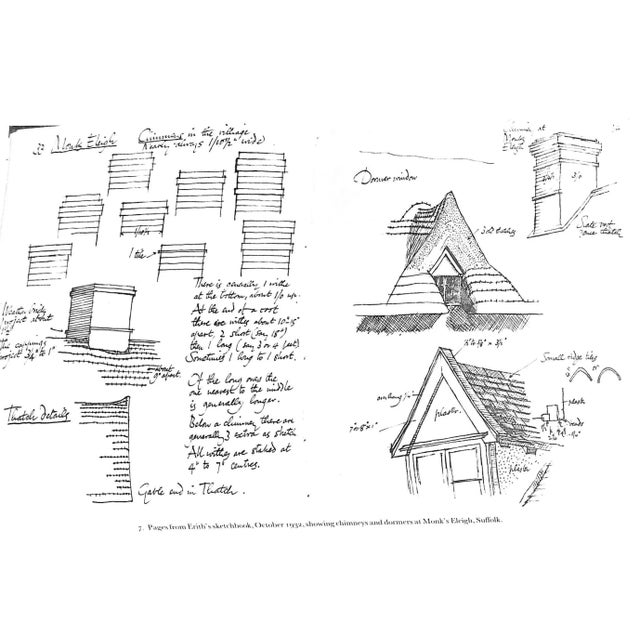 Monks Eleigh
Chimneys in the village
nearly always 1/10½" wide
1 tile
There is generally 1 withe
at the bottom, about 1/0 up.
At the end of a roof
there are withes about 10"-15"
apart, 2 short (say 18")
then 1 long (say 3 or 4 feet)
Sometimes 1 long to 1 short.
Of the long ones the
one nearest to the middle
is generally longer.
Below a chimney there are
generally 3 extra as sketch
All withes are staked at
4" to 7" centres.
project about
project ¾" to 1"
about
9" apart.
Thatch Details
Gable end in Thatch.
Chimney at
Monks
Eleigh
Dormer window
Slate roof
Small ridge tiles
overhang
plaster
plaster
7. Pages from Erith's sketchbook, October 1932, showing chimneys and dormers at Monk's Eleigh, Suffolk.